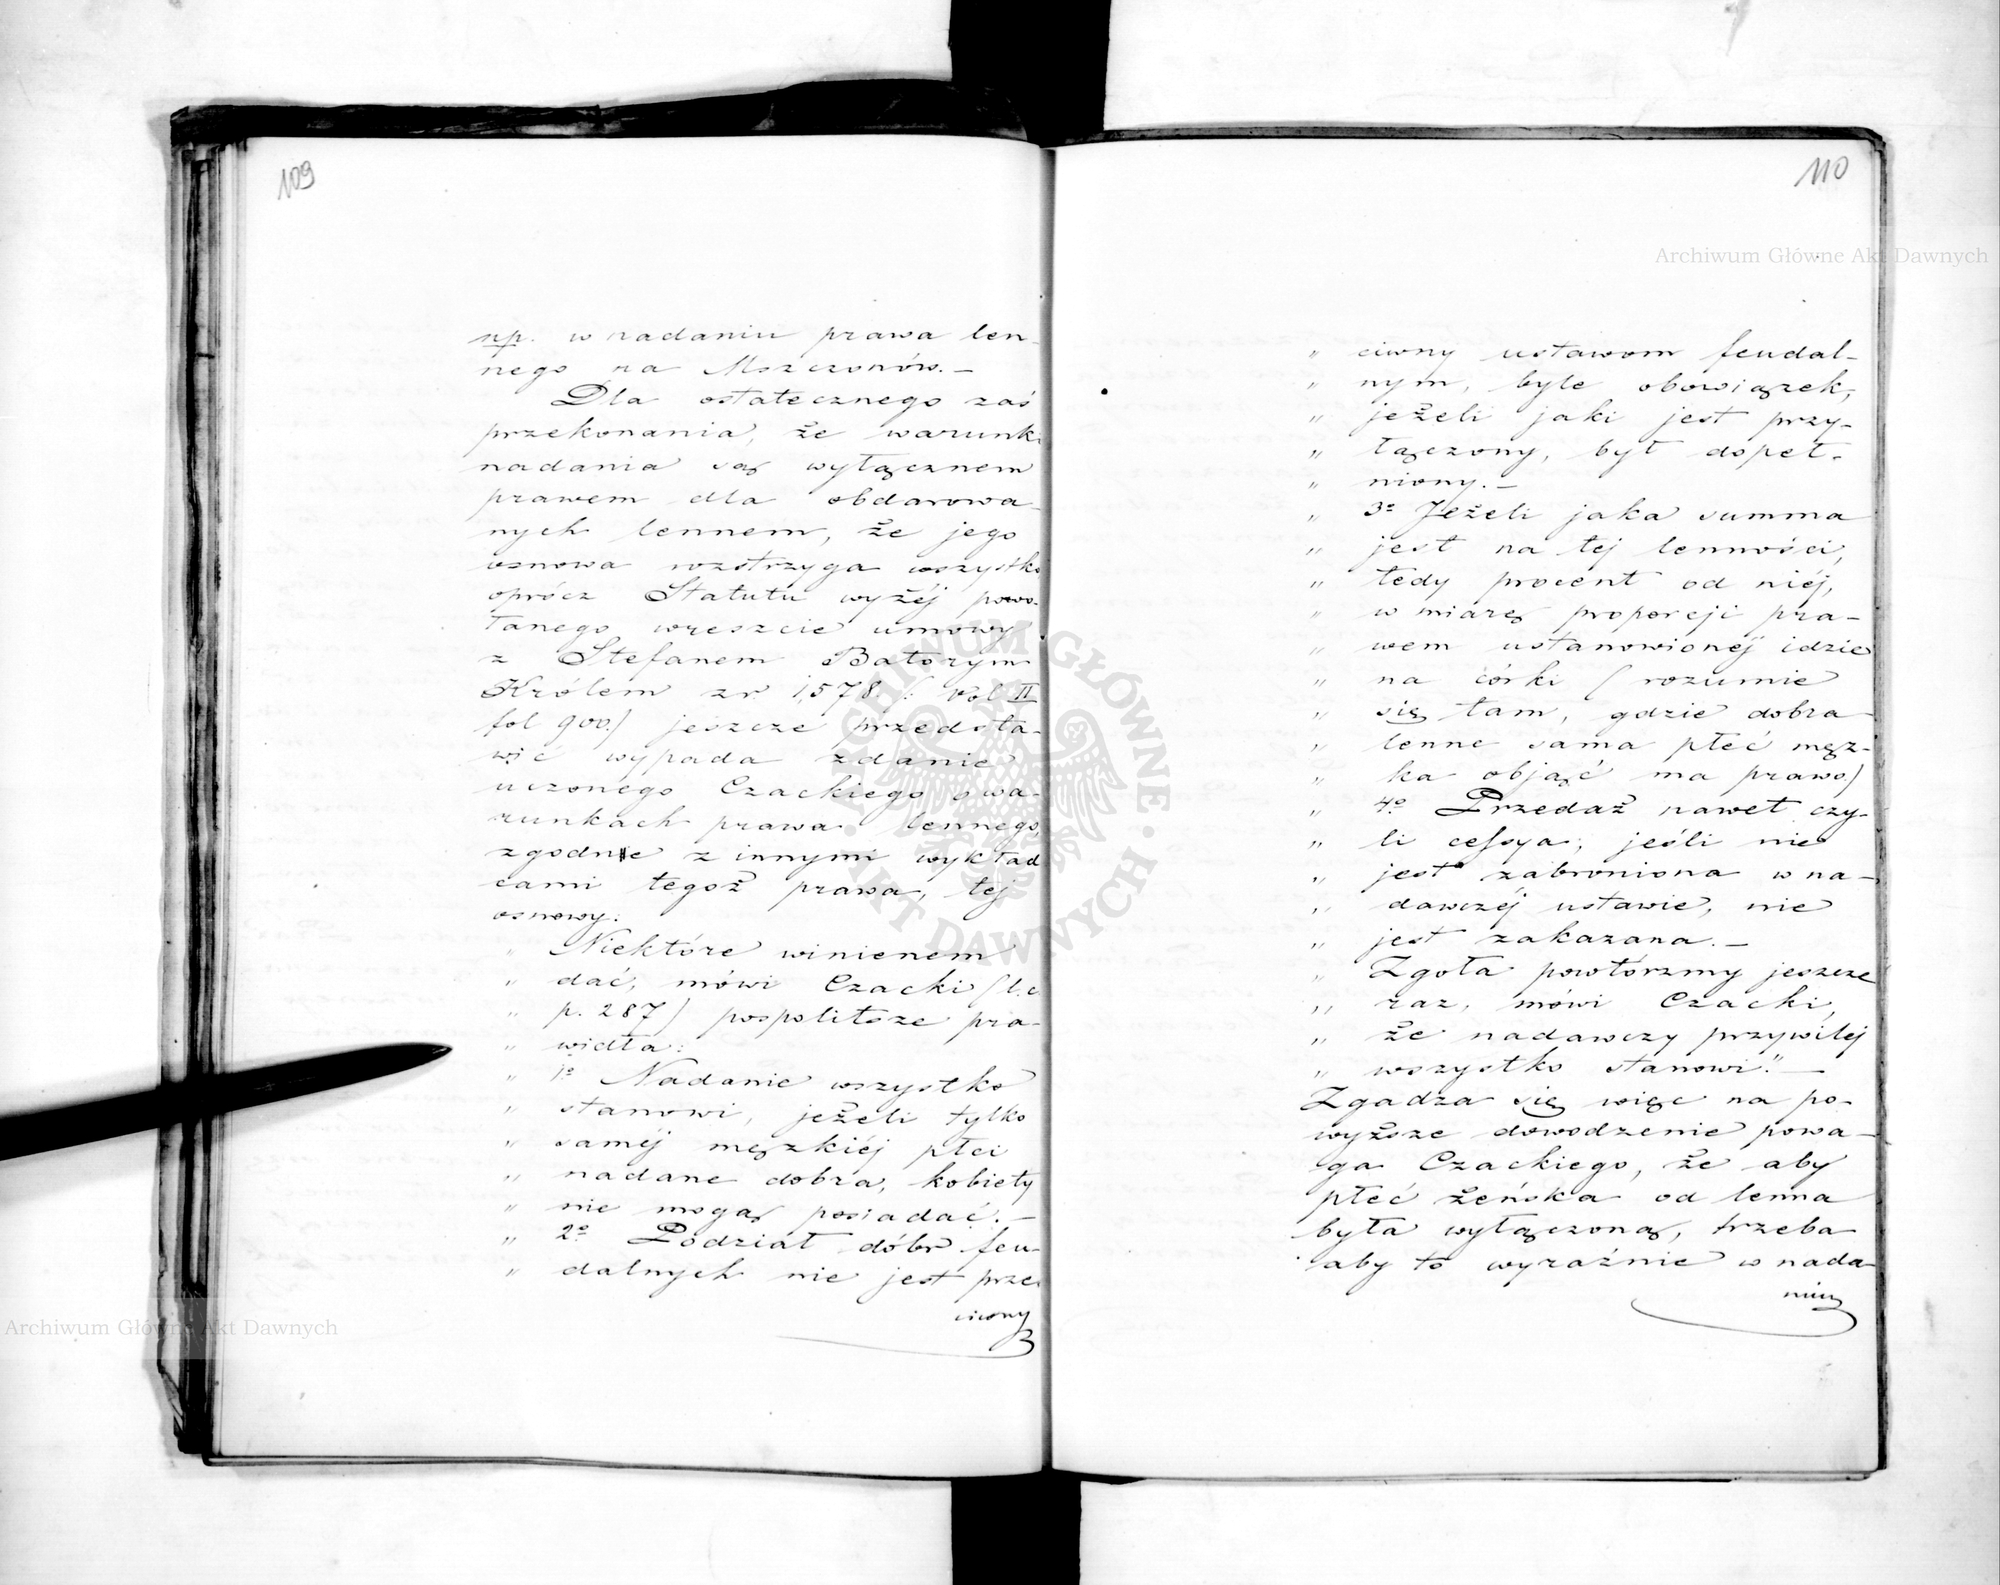 109
np. w nadaniu prawa len-
nego na Mszczonów. —
Dla ostatecznego zaś
przekonania, że warunki
nadania są wyłącznem
prawem dla obdarowa-
nych lennem, że jego
osnowa rozstrzyga wszystko
oprócz Statutu wyżéj powo-
łanego wreszcie umowy
z Stefanem Batorym
Królem z r. 1,578 /: Vol II
fol 900./ jeszcze przedsta-
wić wypada zdanie
uczonego Czackiego o wa-
runkach prawa lennego,
zgodnie z innymi wykład
cami tegoż prawa, téj
osnowy:
" Niektóre winienem
" dać, mówi Czacki /l.c.
" p. 287/ pospolitsze pra-
" widła:
" 1º Nadanie wszystko
" stanowi, jeżeli tylko
" saméj męzkiéj płci
" nadane dobra, kobiety
" nie mogą posiadać. —
" 2º Podział dóbr feu-
" dalnych nie jest prze
ciwny
110
" ciwny ustawom feudal-
" nym, byle obowiązek,
" jeżeli jaki jest przy-
" łączony, był dopeł-
" niony. —
" 3º Jeżeli jaka summa
" jest na téj lenności,
" tedy procent od niéj,
" w miarę proporcji pra-
" wem ustanowionéj idzie
" na córki / rozumie
" się tam, gdzie dobra
" lenne sama płeć męz-
" ka objąć ma prawo./
" 4º Przedaż nawet czy-
" li cessya, jeśli nie
" jest zabroniona w na-
" dawczéj ustawie, nie
" jest zakazana. —
" Zgoła powtórzmy jeszcze
" raz, mówi Czacki,
" że nadawczy przywiléj
" wszystko stanowi." —
Zgadza się więc na po-
wyższe dowodzenie powa-
ga Czackiego, że aby
płeć żeńska od lenna
była wyłączoną, trzeba
aby to wyraźnie w nada-
niu
Archiwum Główne Akt Dawnych
Archiwum Główne Akt Dawnych
ARCHIWUM GŁÓWNE · AKT DAWNYCH ·